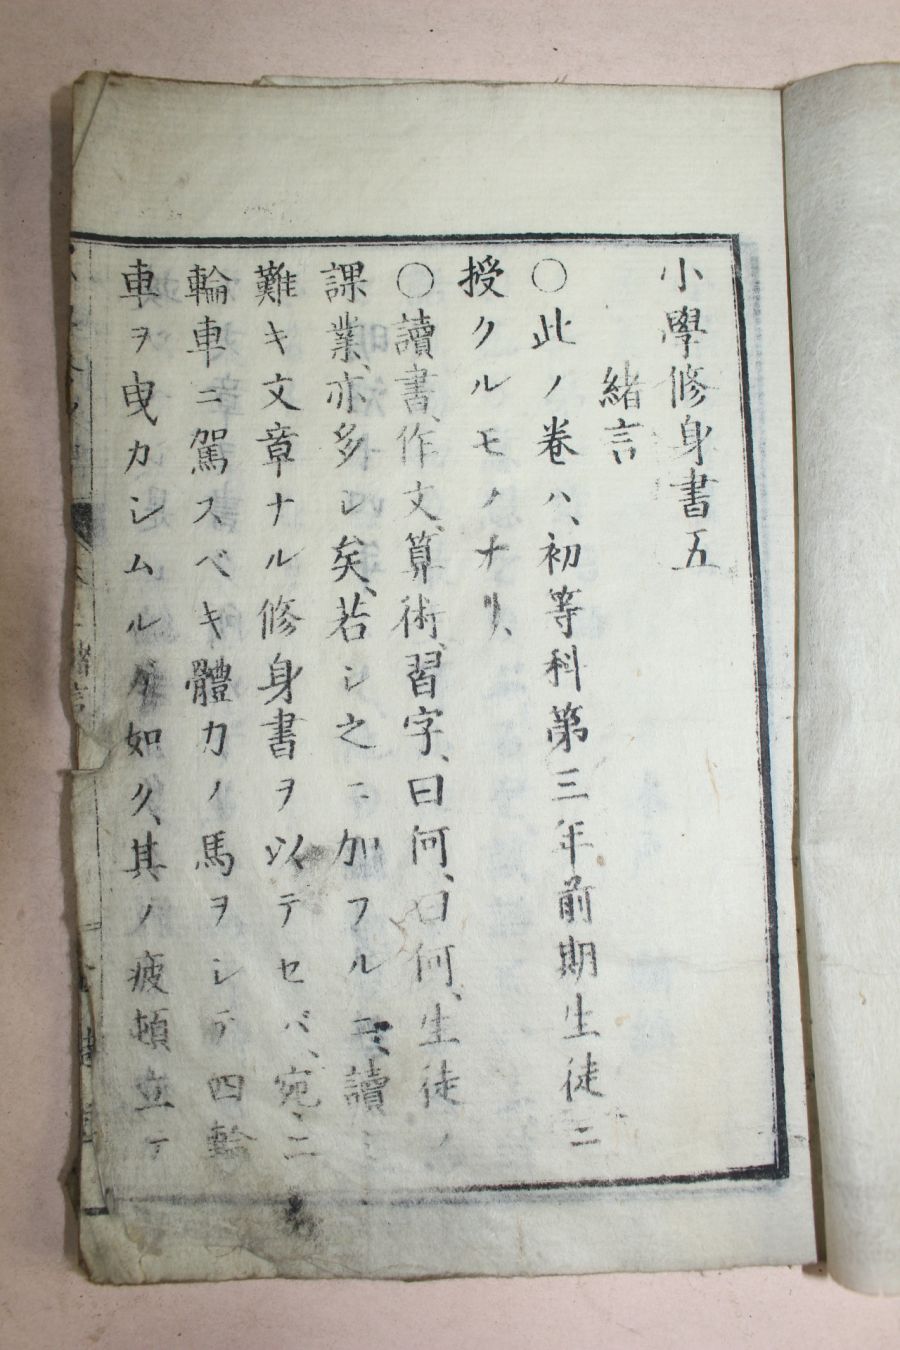 小學修身書五
緒言
〇此ノ卷ハ、初等科第三年前期生徒ニ
授クルモノナリ、
〇讀書、作文、算術、習字、曰何、曰何、生徒ノ
課業、亦多シ矣、若シ之ニ加フルニ、讀ミ
難キ文章ナル修身書ヲ以テセバ、宛ニ
輪車ニ駕スベキ體力ノ馬ヲシテ四輪
車ヲ曳カシムルガ如ク、其ノ疲頓立テ